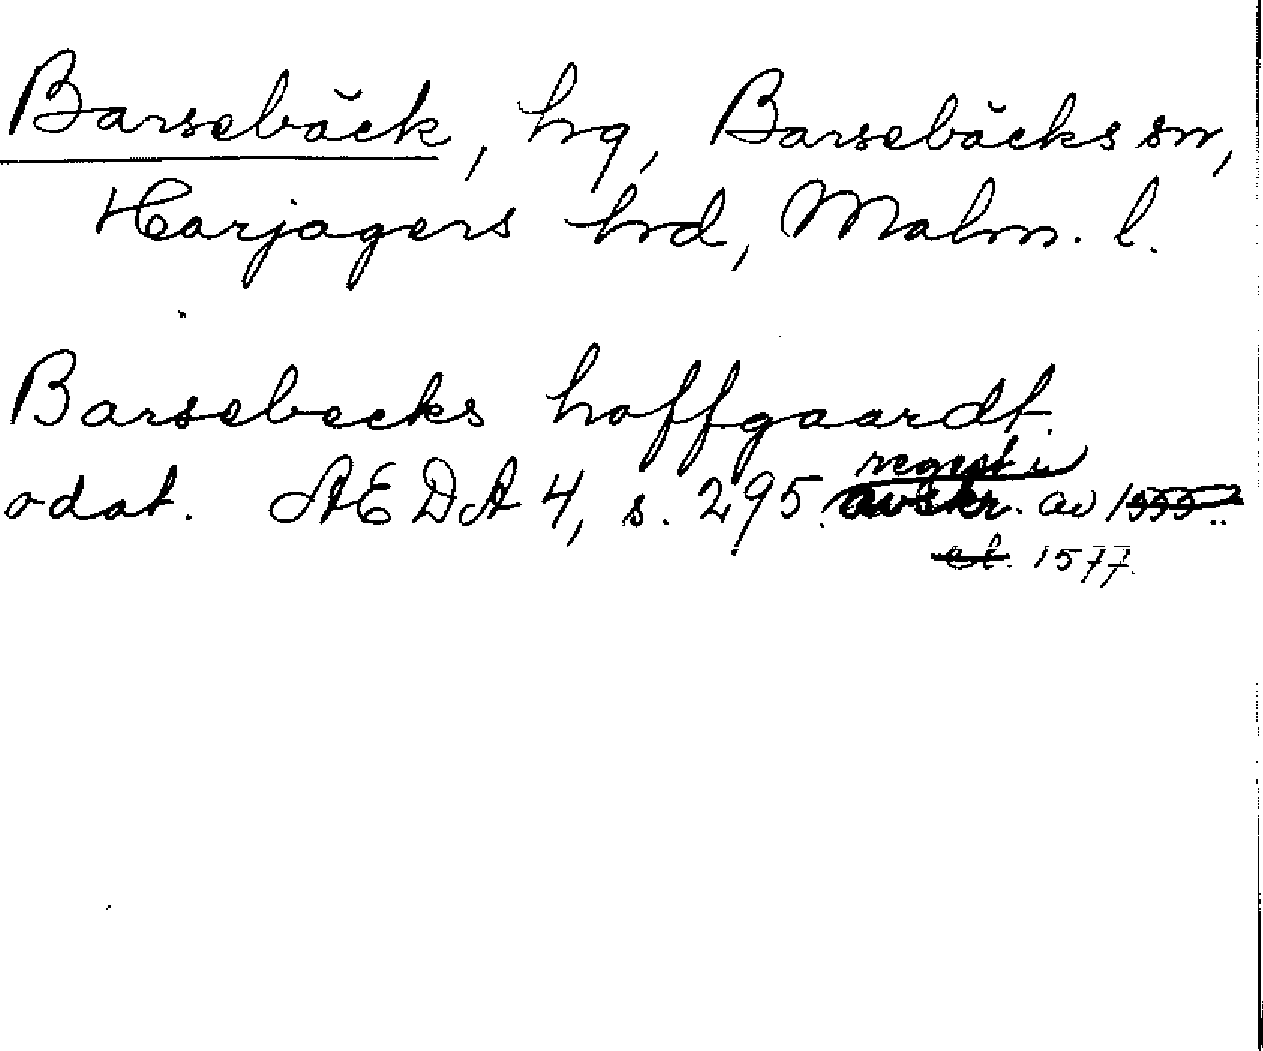 Barsebäck, hg, Barsebäcks sn,
Harjagers hd, Malm. l.
Barsebecks hoffgaardt.
odat. AEDA 4, s. 295. avskr. av
regist i
el. 1577.